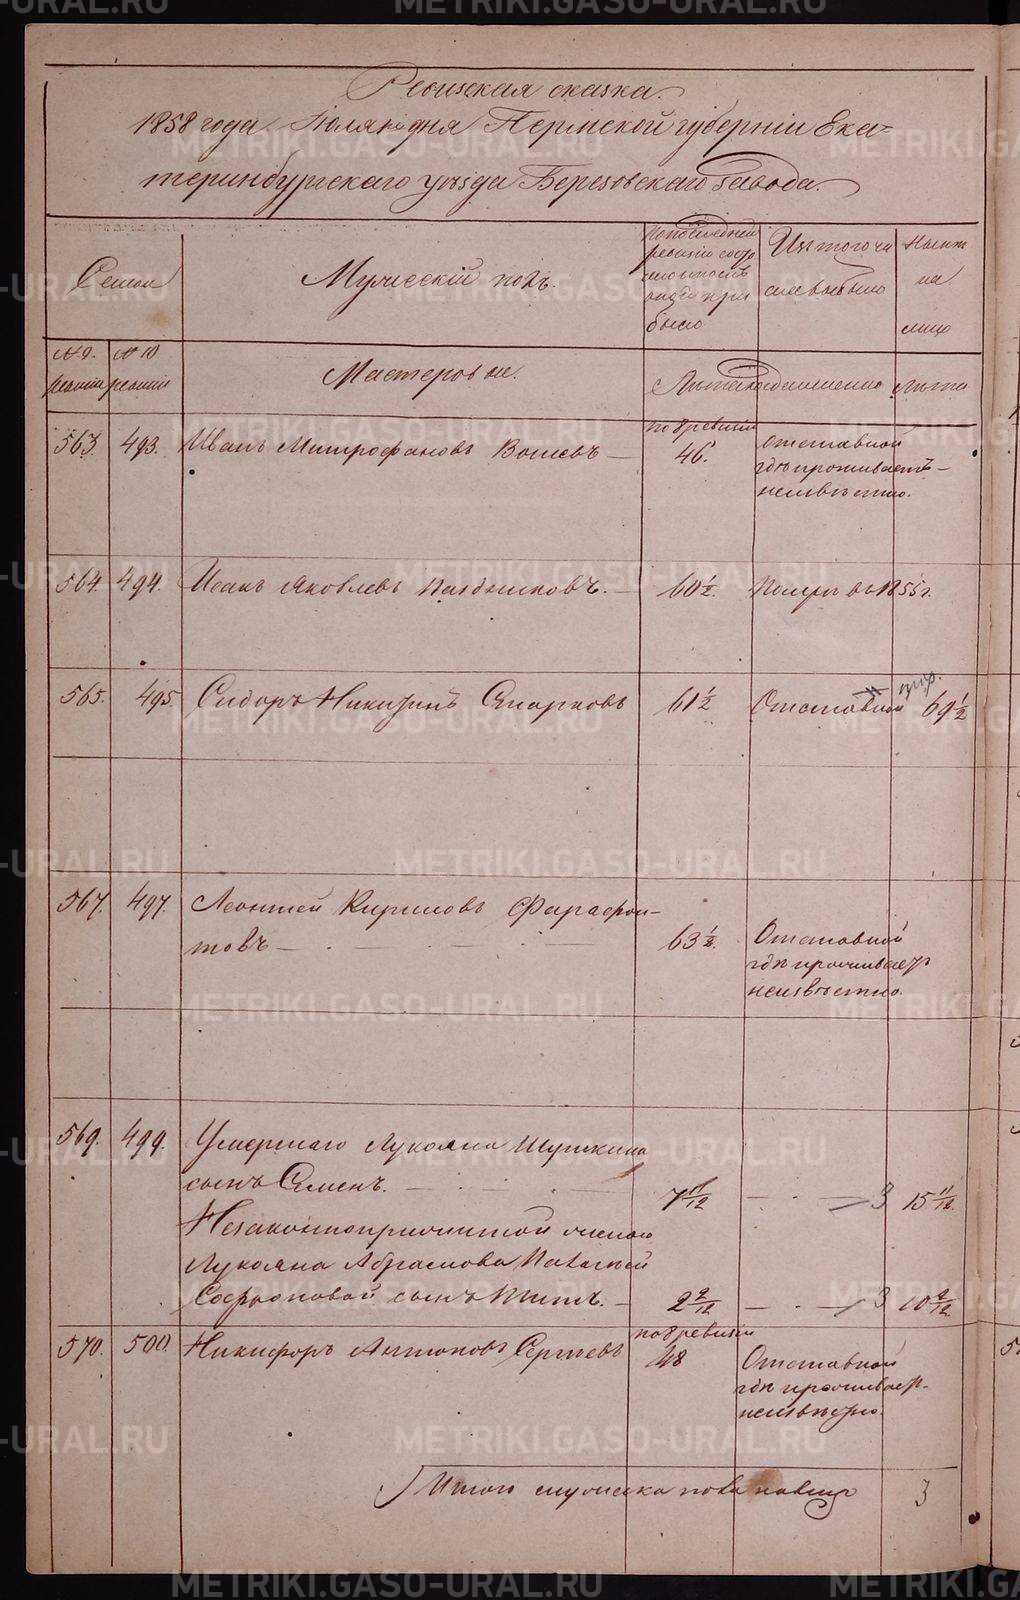 Ревизская сказка.
1858 года Июля дня Пермской губерніи Ека-
теринбургскаго уѣзда Березовскаго завода.
Семьи
Мужескій полъ.
По последней ревизіи состояло и после того прибыло
Изъ того числа выбыло
Нынѣ на лицо
№ 9. ревизіи
№ 10 ревизіи
Мастеровые.
Лѣта
Лѣта
563. 493. Иванъ Митрофановъ — по 8 ревизіи 46. Отставной
гдѣ проживаетъ —
неизвѣстно.
564. 494. Исакъ Яковлевъ — 60 1/2. Помръ въ 1855 г.
565. 495. Сидоръ Никитинъ 61 1/2 Отставной 69 1/2
567. 497. Леонтей Кириловъ Фарафон-
товъ — 63 1/2. Отставной
гдѣ проживаетъ
неизвѣстно.
569. 499. Умершаго Лукояна Шушкина
сынъ Семенъ. — 7 11/12 — 3 15 11/12.
Незаконноприжитой женою
Лукояна Абрамова Натальей
Софроновой сынъ Титъ. — 2 2/12 — 3 10 2/12
570. 500. Никифоръ Антоновъ Сергѣевъ по 8 ревизіи 48 Отставной
гдѣ проживаетъ
неизвѣстно.
Итого мужеска пола налицо 3
METRIKI.GASO-URAL.RU